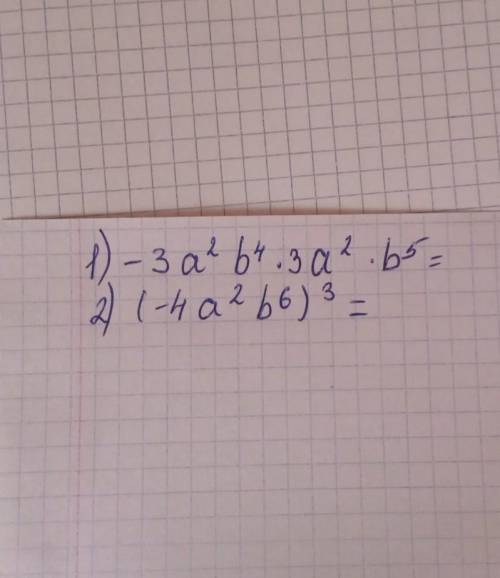 1) - 3a² b⁴ · 3a² · b⁵ =
2) (-4a² b⁶)³ =